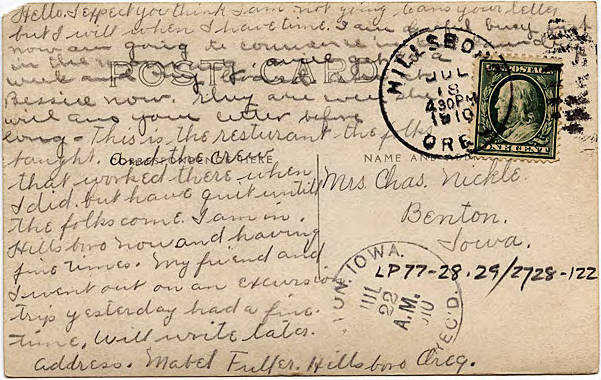 Hello. I expect you think I am not going to ans your letter
but I will when I have time. I am awful busy just
now am going to commence
in the
week and
Bessie now. They are well She
will ans your letter before
long - This is the resturant the folks
bought, and the crew
that worked there when
I did. but have quit until
the folks come. I am in
Hillsboro now and having
fine times. My friend and
I went out on an excursion
trip yesterday had a fine
time, will write later.
address. Mabel Fuller. Hillsboro Oreg.
POST CARD
CORRESPONDENCE HERE
NAME AND
HILLSBORO
JUL
18
430PM
1910
OREG
U.S. POSTAGE
ONE CENT
Mrs Chas. Nickle.
Benton.
Iowa.
LP77-28.29/2728-122
IOWA.
JUL
22
A.M.
1910
REC'D.